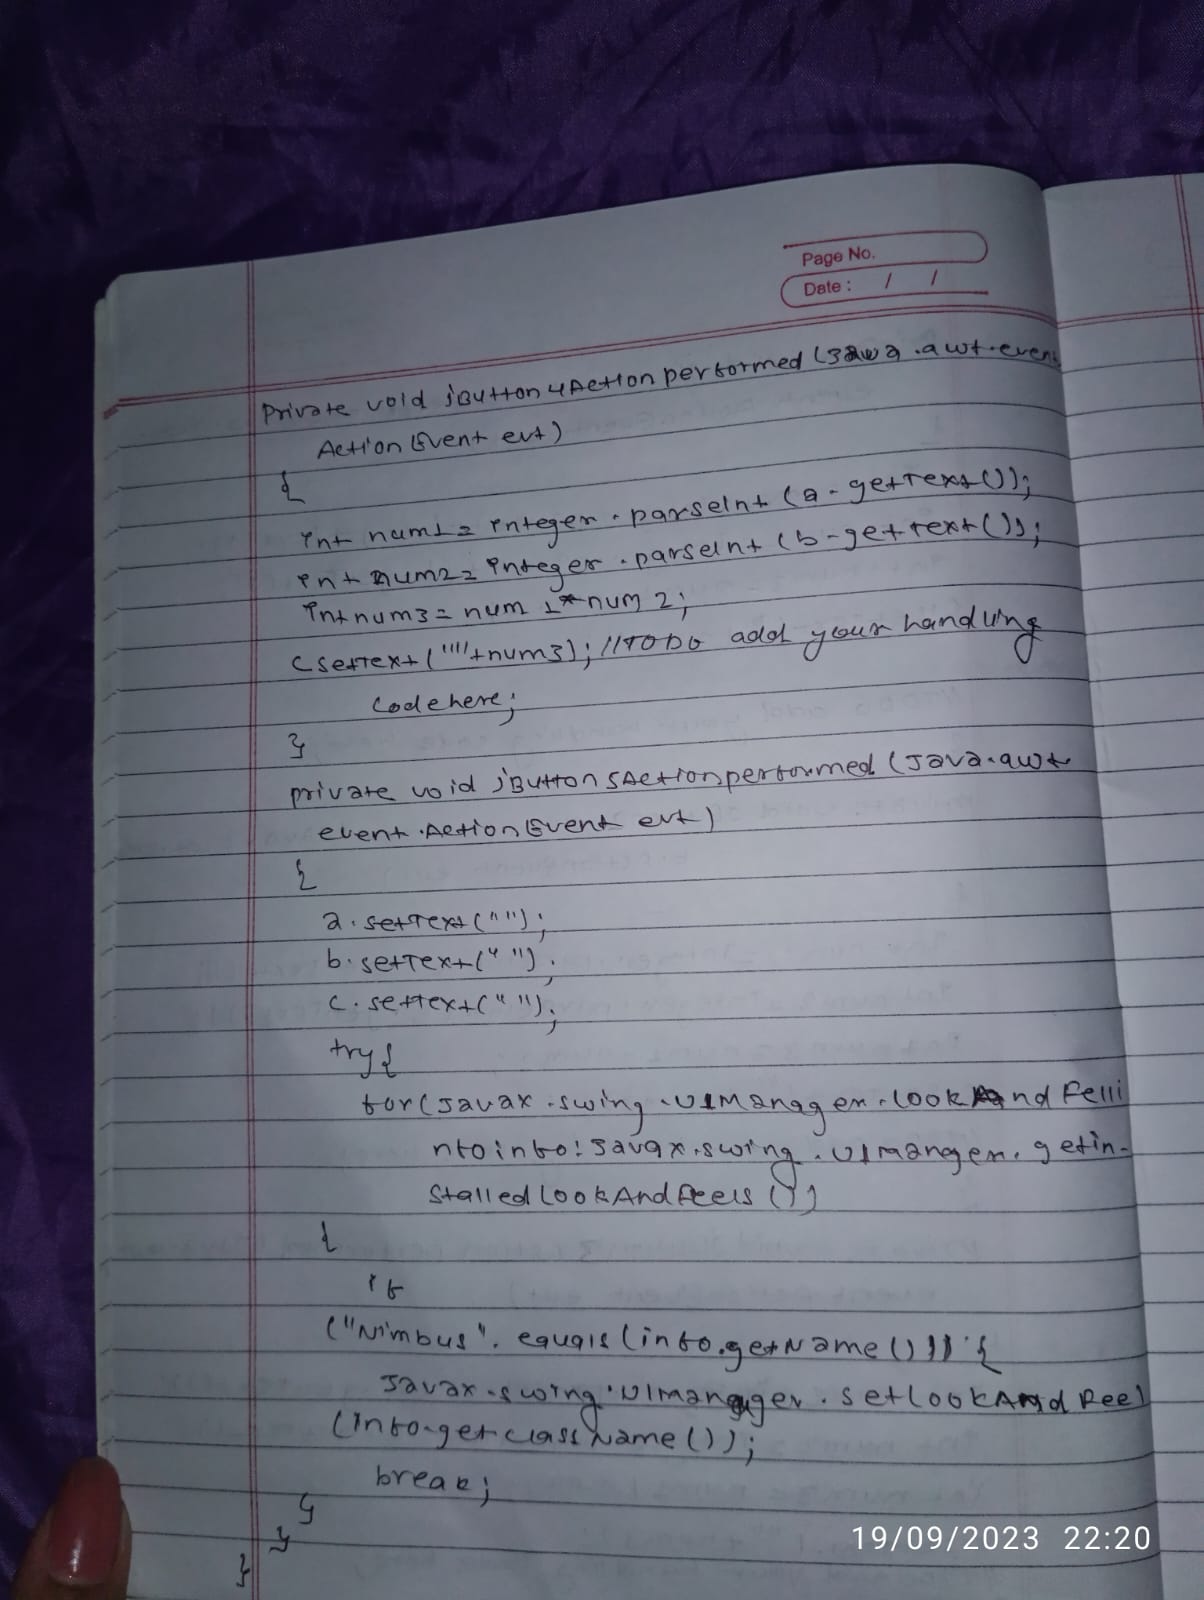 Page No.
Date : / /
Private void jButton4Actionperformed (Java.awt.event
Action Event evt)
{
int num1 = integer.parseInt (a-getText());
int num2 = integer.parseInt (b-getText());
int num3 = num 1*num 2;
C setText (""+num3); //TODO add your handling
code here;
}
private void jButton5Actionperformed (Java.awt
event.Action Event evt)
{
a.setText("");
b.setText(" ");
c.setText(" ");
try{
for(Javax.swing.UIManager.look And Felli
nfo info: Javax.swing.UImanger.getin-
stalled look And Feels ())
{
if
("Nimbus".equals (info.getName())) {
Javax.swing.UImanager.setlookAnd Feel
(info.getclassName());
break;
}
}
}
19/09/2023 22:20